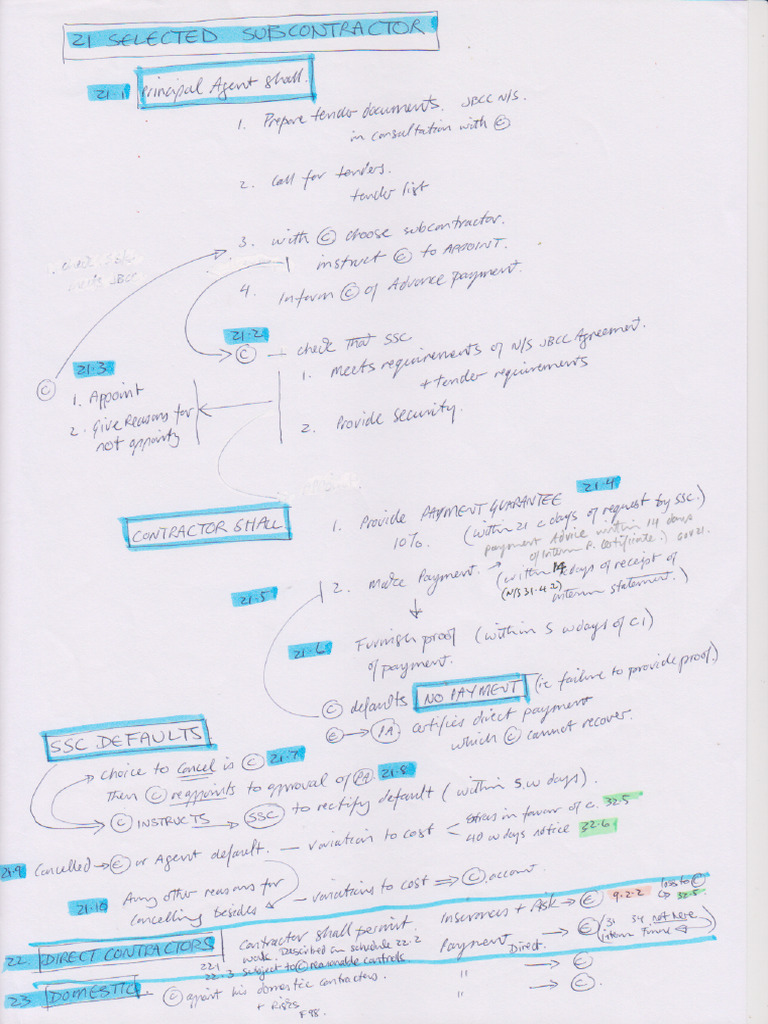 21 SELECTED SUBCONTRACTOR
21.1 Principal Agent Shall.
1. Prepare tender documents. JBCC N/S.
in consultation with Ⓒ
2. Call for tenders.
tender list
3. with Ⓒ choose subcontractor.
instruct Ⓒ to APPOINT.
4. Inform Ⓒ of Advance payment.
21.2
Ⓒ → check that SSC
1. Meets requirements of N/S JBCC Agreement.
+ tender requirements
2. Provide Security.
21.3
Ⓒ
1. Appoint
2. Give Reasons for
not appointg
CONTRACTOR SHALL
21.4
1. Provide PAYMENT GUARANTEE
10%. (within 21 c days of request by SSC.)
Payment Advice within 14 days
of Interim P. Certificate.)
21.5
2. Make Payment. → (within 14 days of receipt of
(N/S 31.4.2) interim statement.)
21.6 Furnish proof (within 5 w days of C1)
of payment.
Ⓒ defaults NO PAYMENT (ie failure to provide proof.)
Ⓔ → PA certifies direct payment
which Ⓒ cannot recover.
SSC DEFAULTS.
choice to cancel is Ⓒ 21.7
Then Ⓒ reappoints to approval of PA 21.8
Ⓒ INSTRUCTS → SSC to rectify default (within 5 w days).
21.9 Cancelled → Ⓔ or Agent default. — variation to cost < in favour of c. 32.5
40 w days notice 32.6
21.10 Any other reasons for
cancelling besides — variations to cost ⇒ Ⓒ account.
22. DIRECT CONTRACTORS
Contractor shall permit
work. Described in schedule 22.2
22.1
22.3 subject to Ⓒ reasonable controls.
Insurances + Risk → Ⓔ 9.2.2 loss to Ⓒ
↳ 32.5
Payment Direct. → Ⓔ (31 34 not here
interim Final
23 DOMESTIC — Ⓒ appoint his domestic contractors.
+ Risks
F98.
" → Ⓒ
" → Ⓒ.